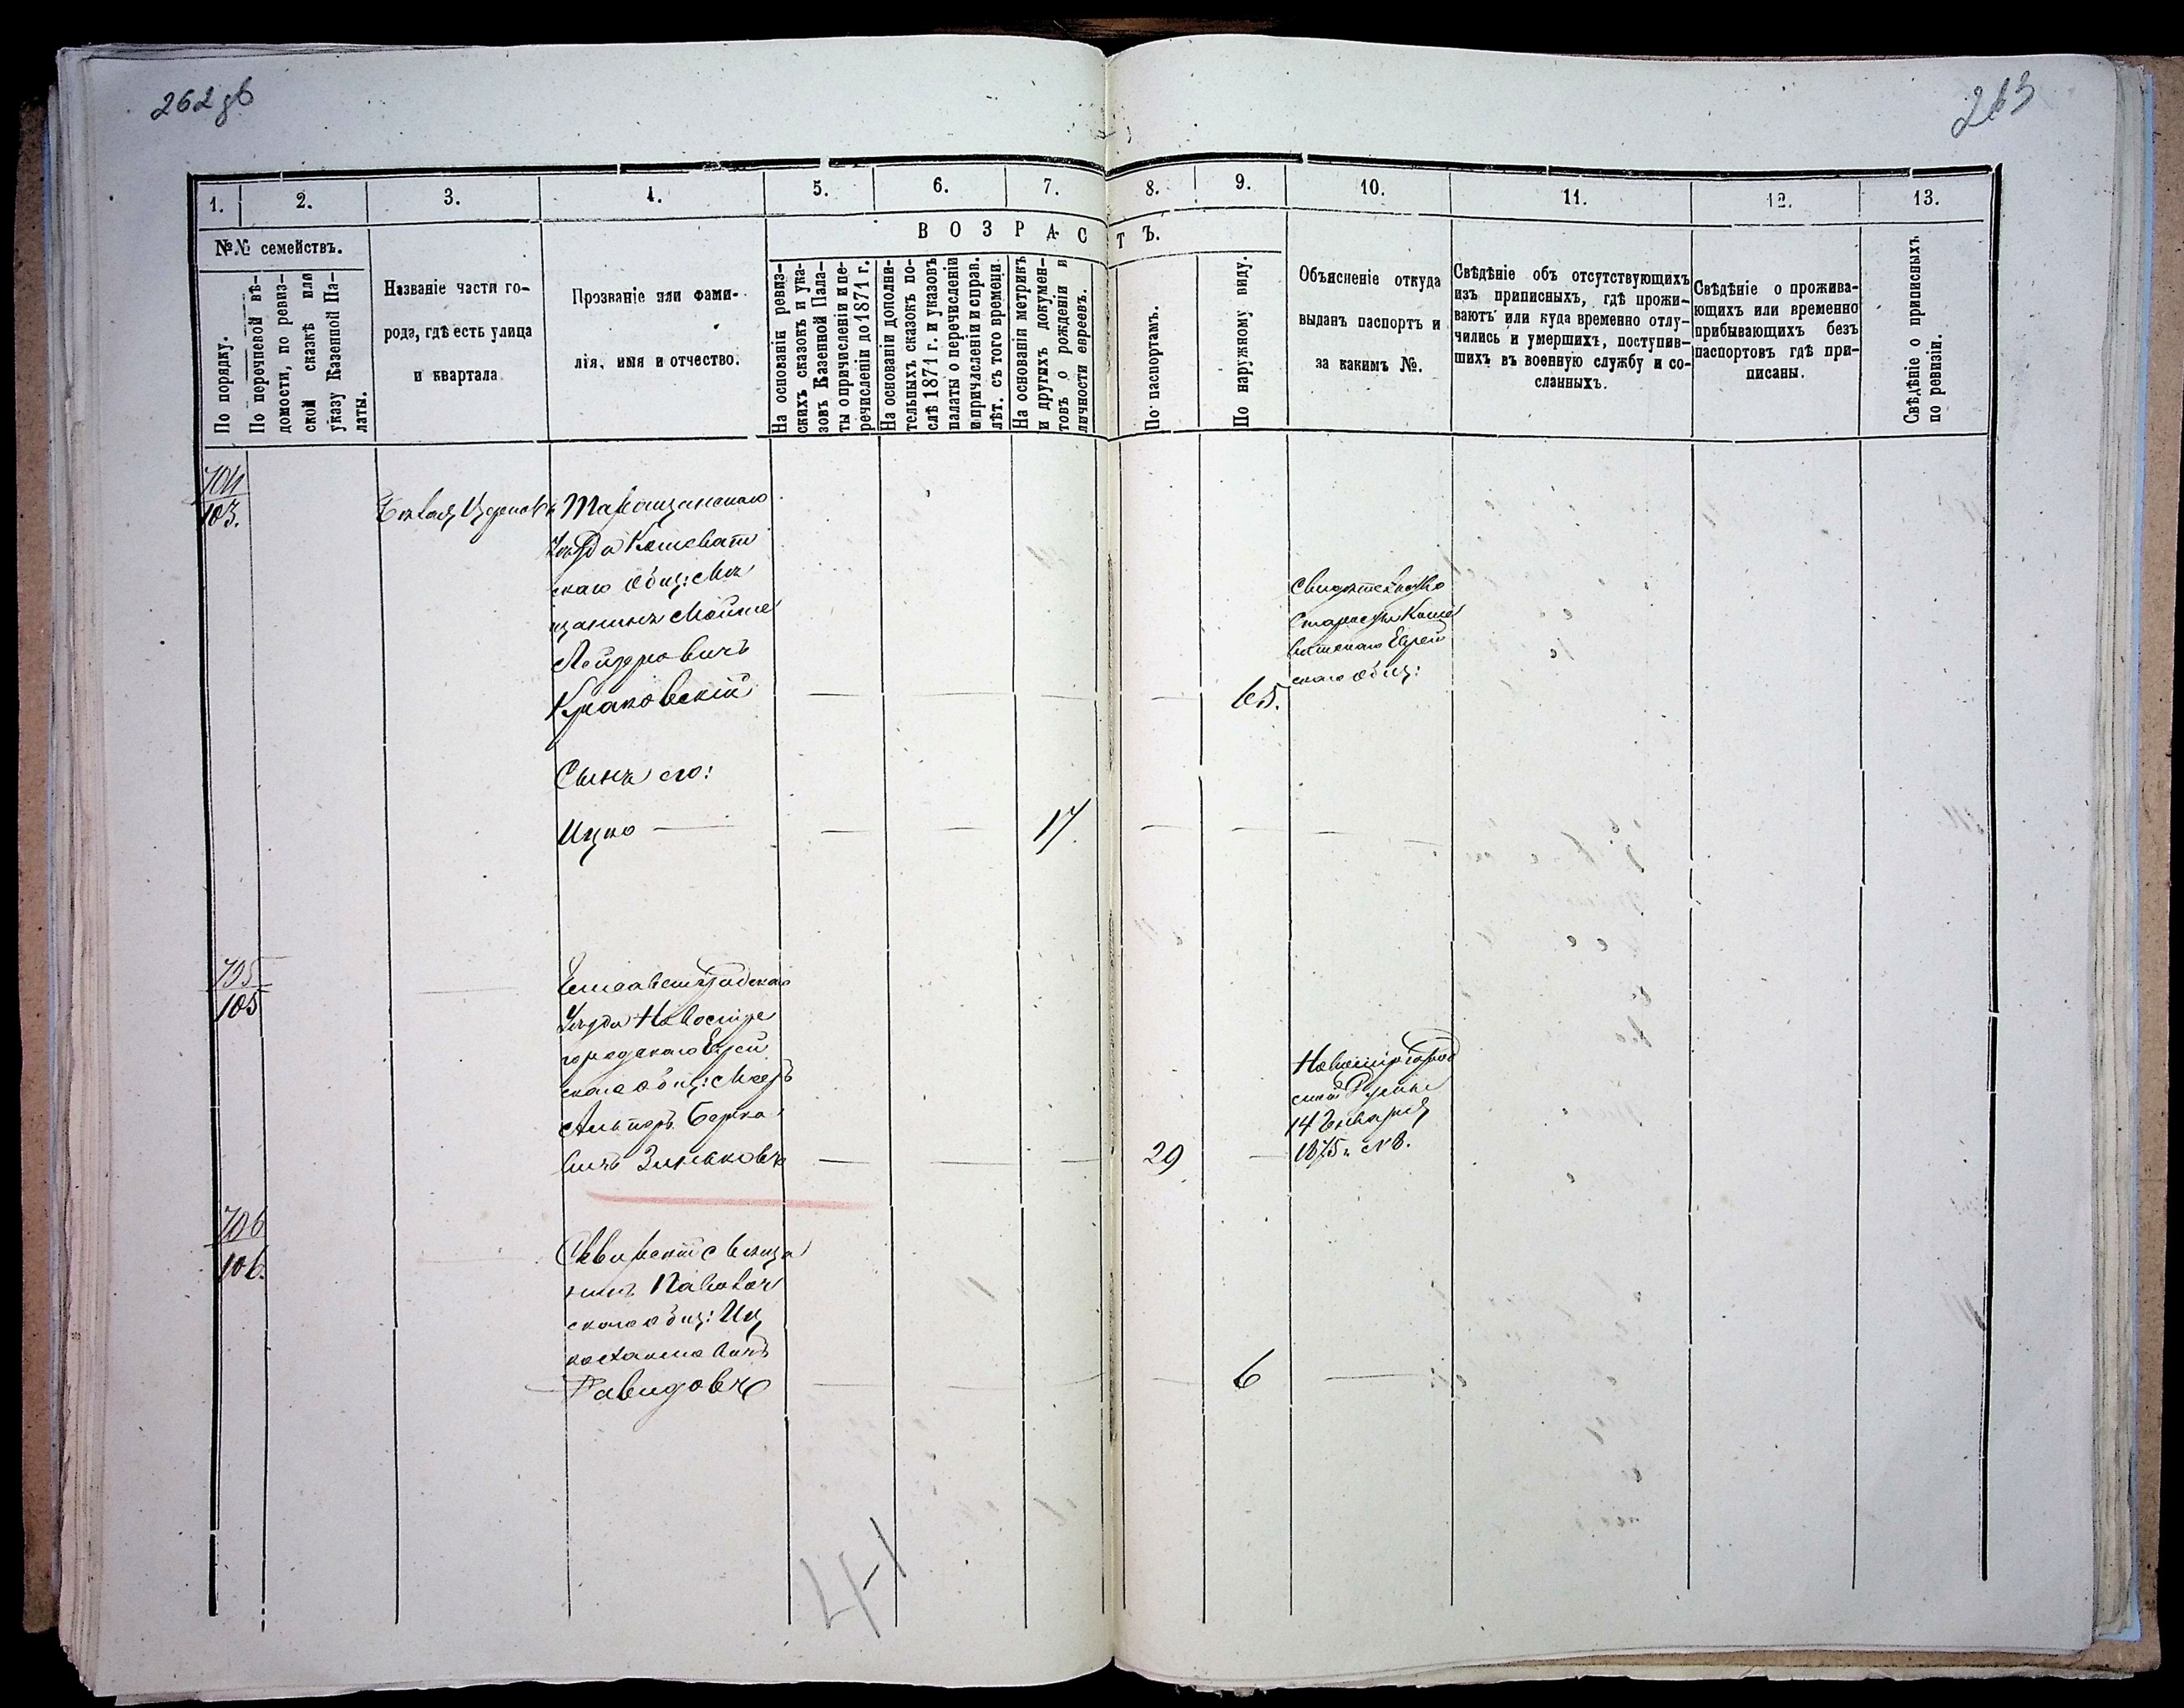 262 зв
263
1. 2. 3. 4. 5. 6. 7. 8. 9. 10. 11. 12. 13.
№№ семействъ.
ВОЗРАСТЪ.
По порядку.
По перечневой вѣ-
домости, по ревиз-
ской сказкѣ или
указу Казенной Па-
латы.
Названіе части го-
рода, гдѣ есть улица
и квартала
Прозваніе или фами-
лія, имя и отчество.
На основаніи ревиз-
скихъ сказокъ и ука-
зовъ Казенной Пала-
ты о причисленіи и пе-
речисленіи до 1871 г.
На основаніи дополни-
тельныхъ сказокъ по-
слѣ 1871 г. и указовъ
палаты о перечисленіи
и причисленіи и справ.
лѣт. съ того времени.
На основаніи метрикъ
и другихъ докумен-
товъ о рожденіи и
личности евреевъ.
По паспортамъ.
По наружному виду.
Объясненіе откуда
выданъ паспортъ и
за какимъ №.
Свѣдѣніе объ отсутствующихъ
изъ приписныхъ, гдѣ прожи-
ваютъ или куда временно отлу-
чились и умершихъ, поступив-
шихъ въ военную службу и со-
сланныхъ.
Свѣдѣніе о прожива-
ющихъ или временно
прибывающихъ безъ
паспортовъ гдѣ при-
писаны.
Свѣдѣніе о приписныхъ
по ревизіи.
704
103.
Бѣлая Церковь
Таращанскаго
Уѣзда Кошеват
скаго общ: Мѣ
щанинъ Мойше
Лейзеровичъ
Краковскій — — — — 65.
Свидѣтельство
Старосты Коше
ватскаго Еврей
скаго общ:
Сынъ его:
Ицко — — — 17 — —
705
105
—
Елисаветградскаго
Уѣзда Новомирго
родскаго Еврей
скаго общ:
Альтеръ Берко
вичъ Зиньковъ — — — 29 —
Новомиргород
ской
14 Января
1875 г. № 8.
706
106.
—
Сквирскій мѣща
нинъ Паволоч
скаго общ: Иц
ко
Давидовъ — — — — 6 —
41